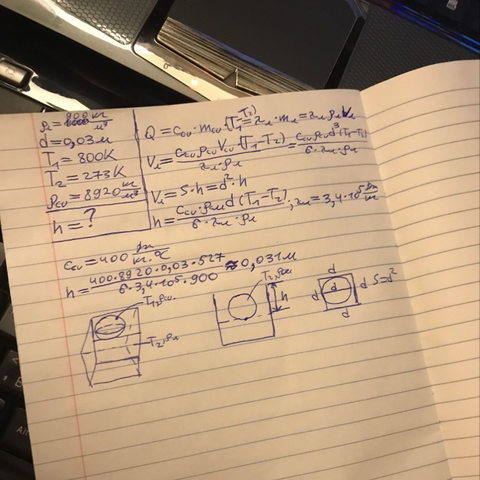 ρл=900 кг/м³
d=0,03м
T₁=800K
T₂=273K
ρсu=8920 кг/м³
h=?
Q=Ccu·mcu·(T₁-T₂)=λл·mл=λл·ρл·Vл
Vл=Ccu·ρcu·Vcu·(T₁-T₂)/λл·ρл=Ccu·ρcu·d³(T₁-T₂)/6·λл·ρл
Vл=S·h=d²·h
h=Ccu·ρcu·d(T₁-T₂)/6·λл·ρл; λл=3,4·10⁵ Дж/кг
Ccu=400 Дж/кг·°C
h=400·8920·0,03·527/6·3,4·10⁵·900≈0,031м
T₁,ρcu.
T₂,ρл
T₂,ρcu
h
d
d d d S=d²
d
Alt